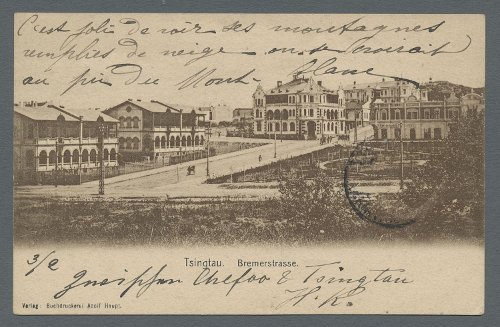 C'est joli de voir les montagnes
remplies de neige on se croirait
au pied du Mont-Blanc
Tsingtau. Bremerstrasse.
3/2
Chefoo & Tsingtau
H.K.
Verlag: Buchdruckerei Adolf Haupt.